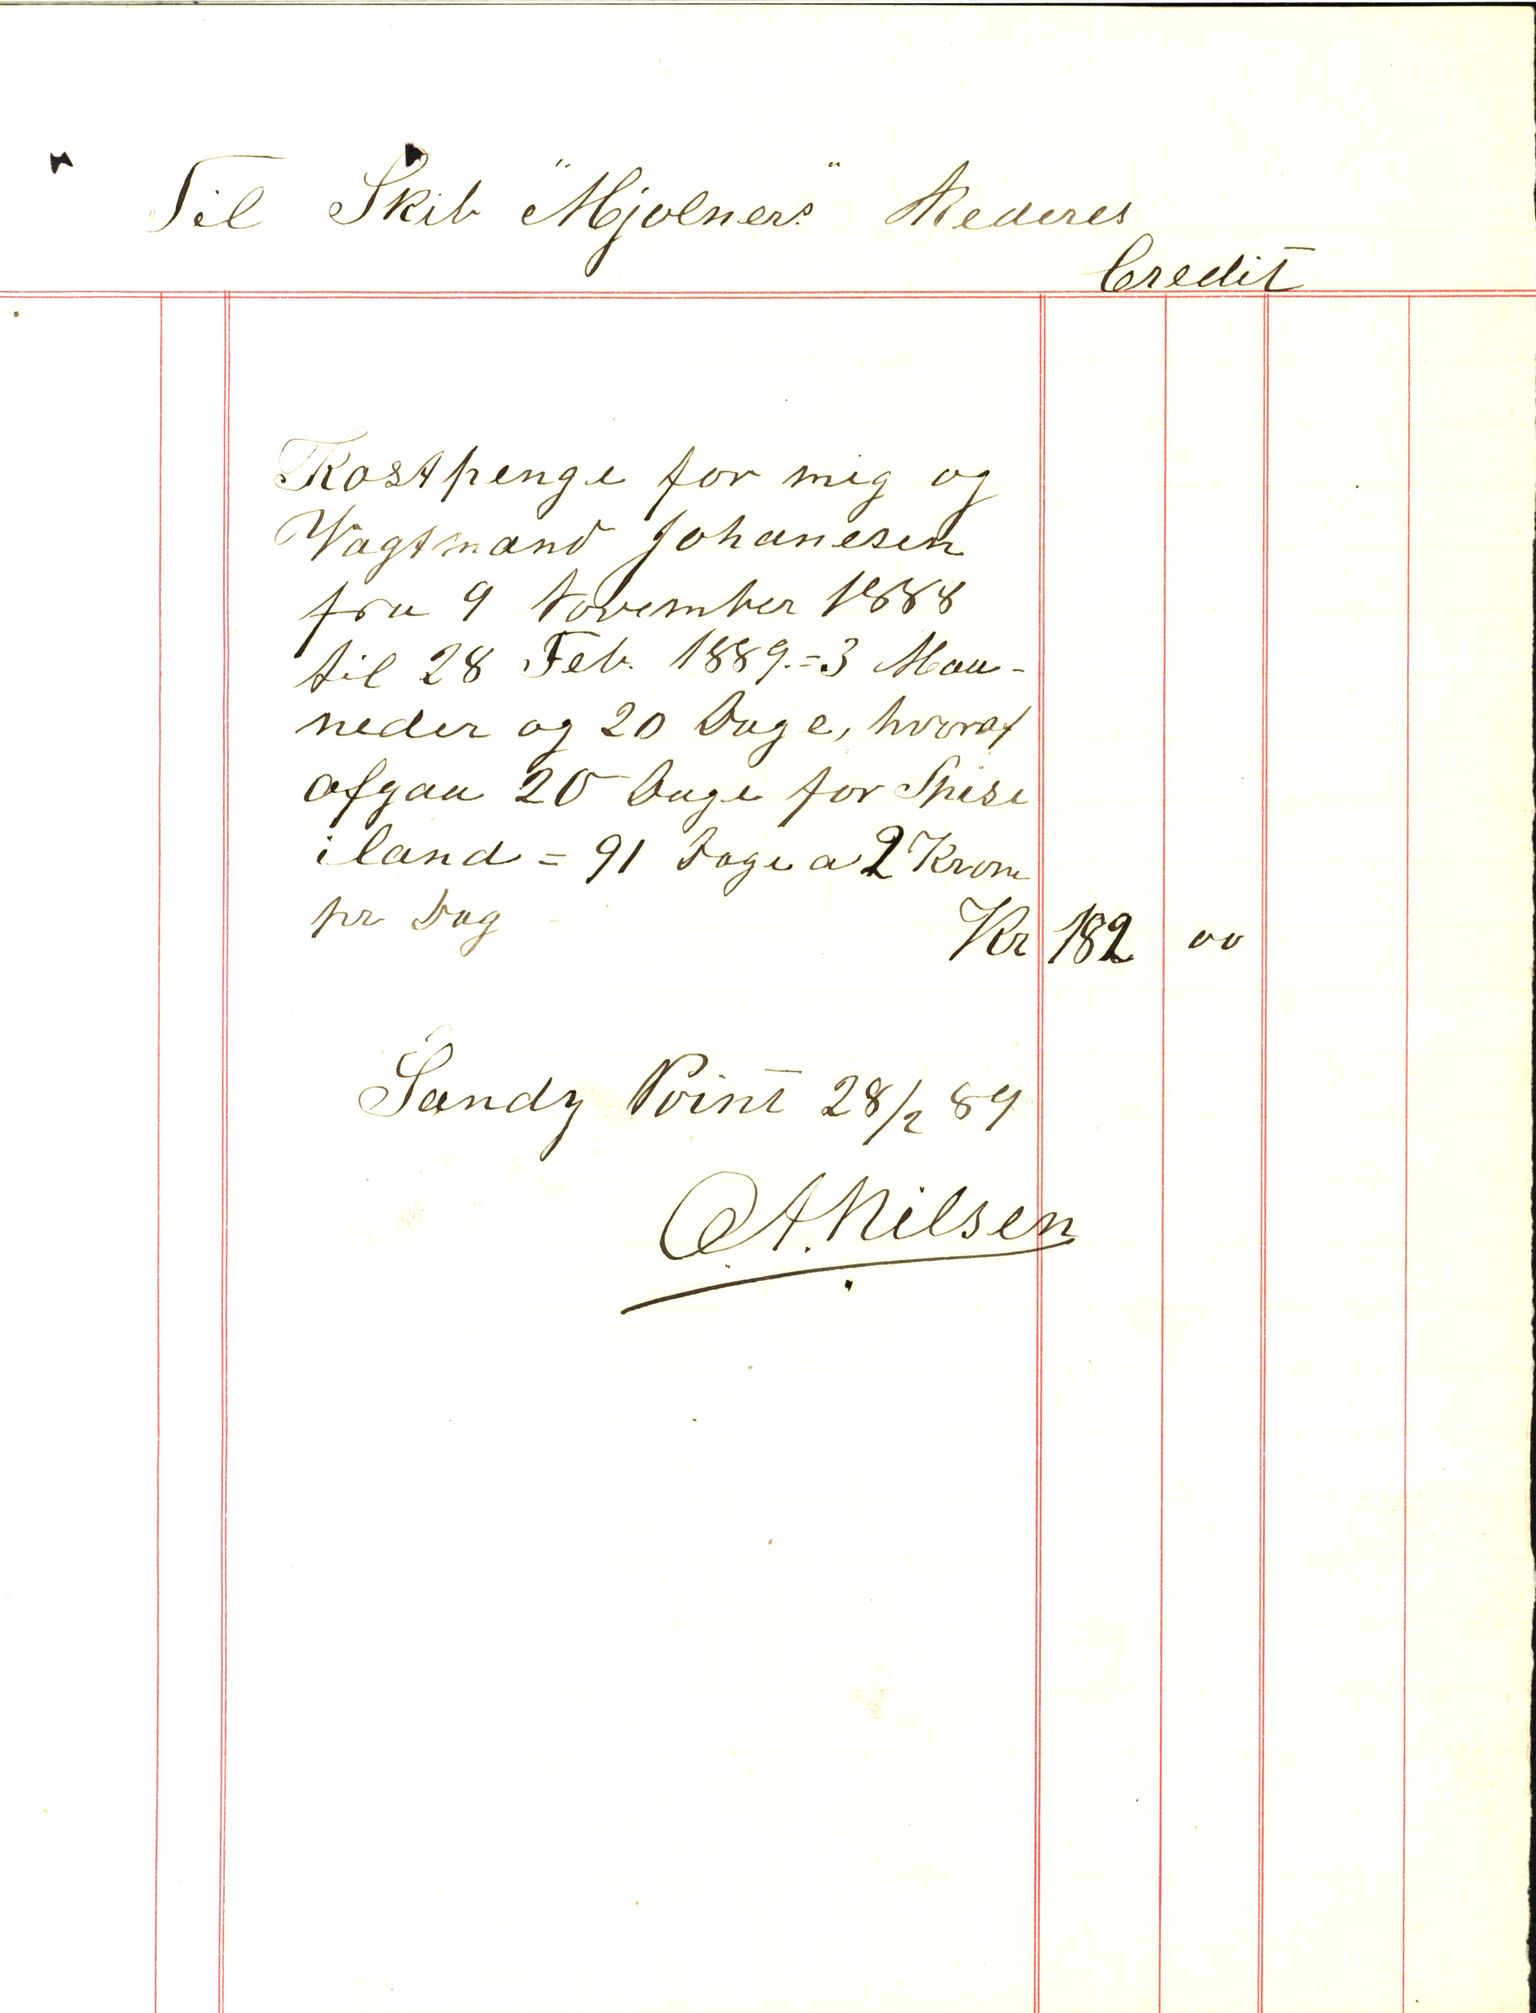 Til Skib "Mjolners" Rederes
Credit
Kostpenge for mig og
Vagtmand Johanesen
fra 9 November 1888
til 28 Feb. 1889.=3 Maa-
neder og 20 Dage, hvoraf
afgaa 20 Dage for Spise
iland = 91 Dage a 2 Krone
pr Dag Kr 182 00
Sandy Point 28/2 89
O. A. Nilsen